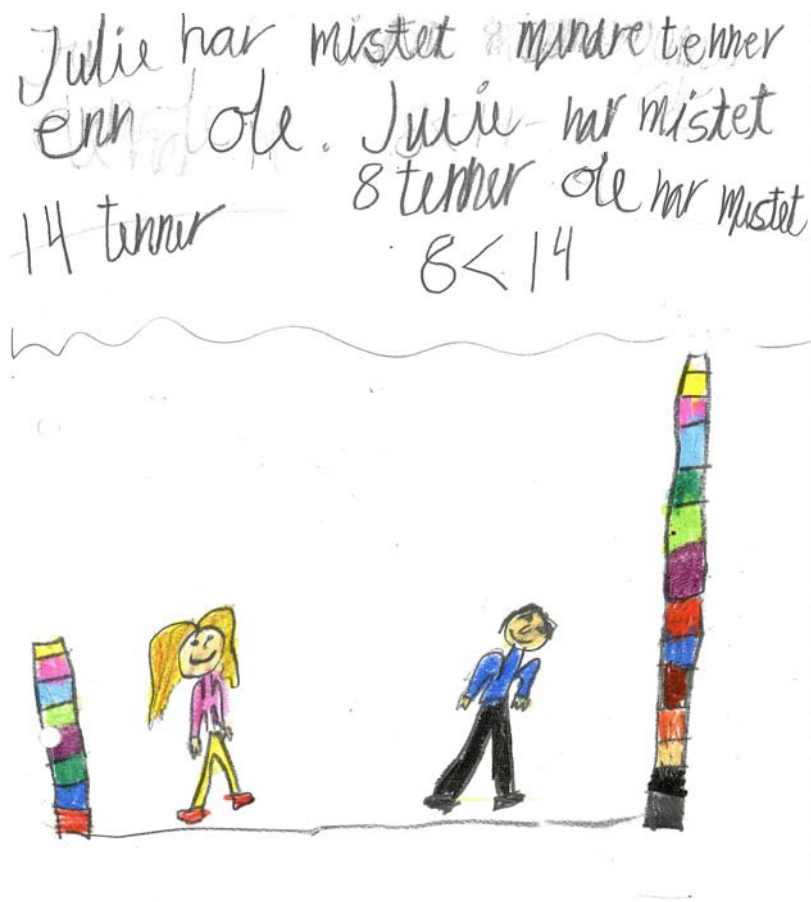 Julie har mistet mindre tenner
enn ole. Julie har mistet
8 tenner ole har mistet
14 tenner
8<14